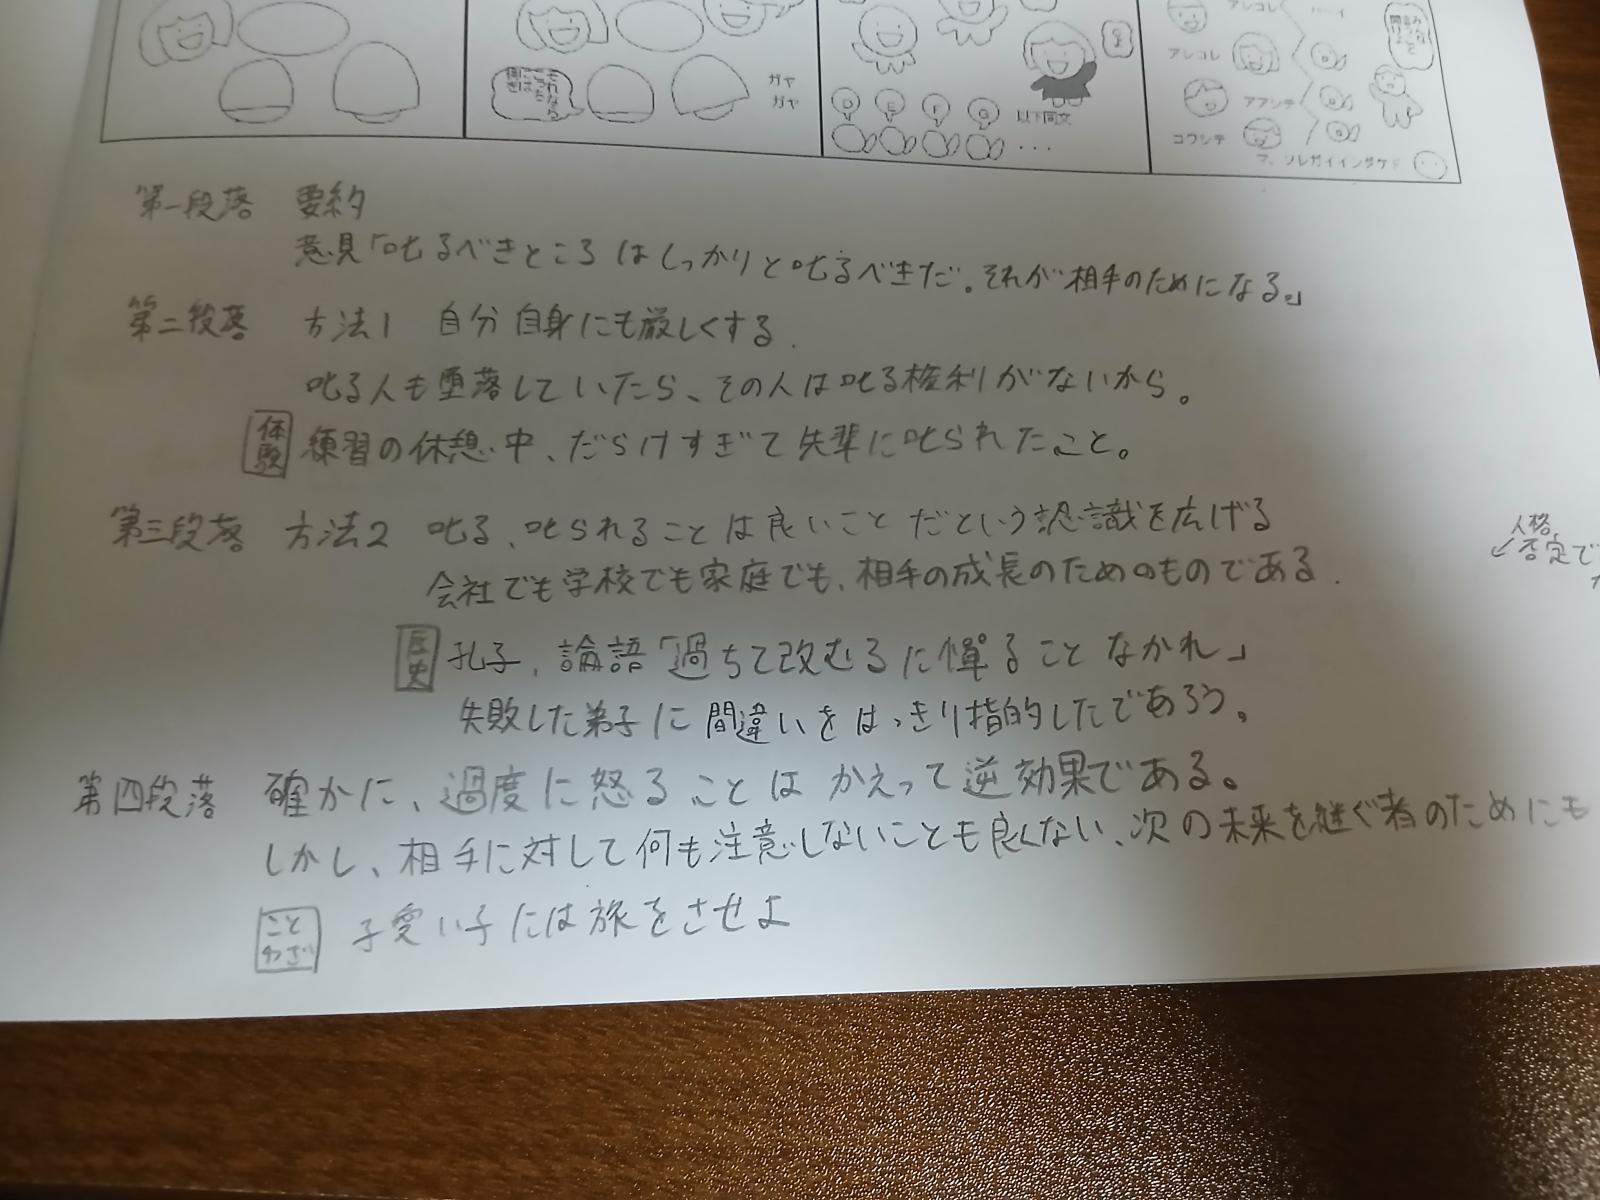 ガヤ
ガヤ
D E F G 以下同文
...
アレコレ
ハーイ
アレコレ
アアシテ
コウシテ
マ、ソレガイインダケド
第一段落 要約
意見「叱るべきところはしっかりと叱るべきだ。それが相手のためになる。」
第二段落 方法1 自分自身にも厳しくする.
叱る人も堕落していたら、その人は叱る権利がないから。
体験 練習の休憩中、だらけすぎて先輩に叱られたこと。
第三段落 方法2 叱る、叱られることは良いことだという認識を広げる
会社でも学校でも家庭でも、相手の成長のためのものである.
人格
↙否定で
歴史 孔子、論語「過ちて改むるに憚ることなかれ」
失敗した弟子に間違いをはっきり指的したであろう。
第四段落 確かに、過度に怒ることはかえって逆効果である。
しかし、相手に対して何も注意しないことも良くない、次の未来を継ぐ者のためにも
ことわざ 子愛い子には旅をさせよ